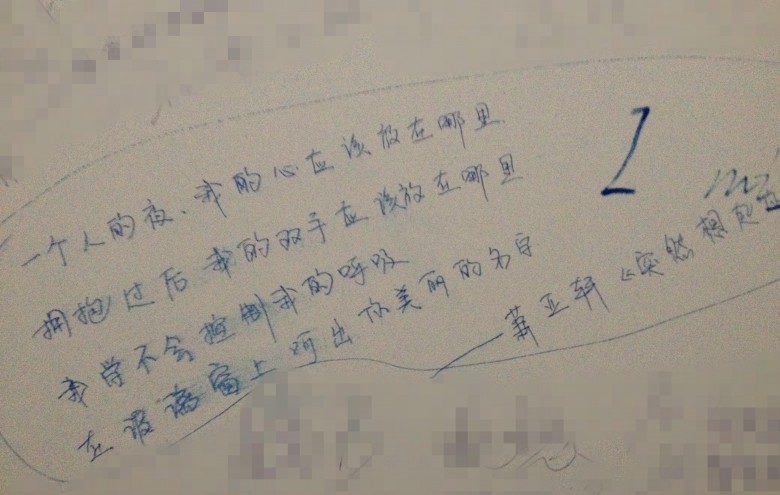 一个人的夜.我的心应该放在哪里.
拥抱过后 我的双手应该放在哪里
我学不会控制我的呼吸
在玻璃窗上呵出你美丽的名字
——萧亚轩《突然想起
I mi